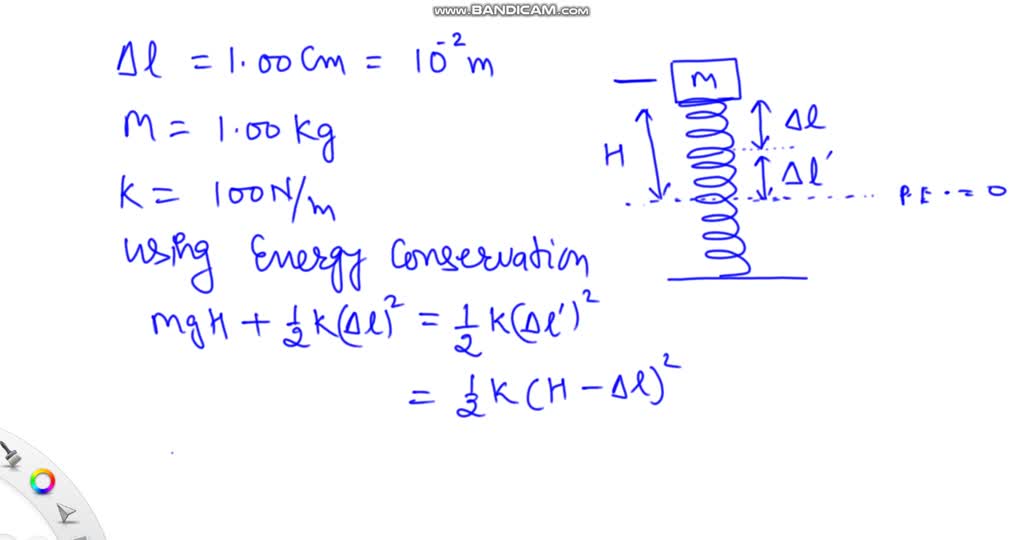 www.BANDICAM.com
Δl = 1.00 Cm = 10⁻² m
M = 1.00 kg
K = 100 N/m
using Energy Conservation
mgH + ½ K(Δl)² = ½ K(Δl′)²
= ½ K (H − Δl)²
M
H
Δl
Δl′
P E · = 0